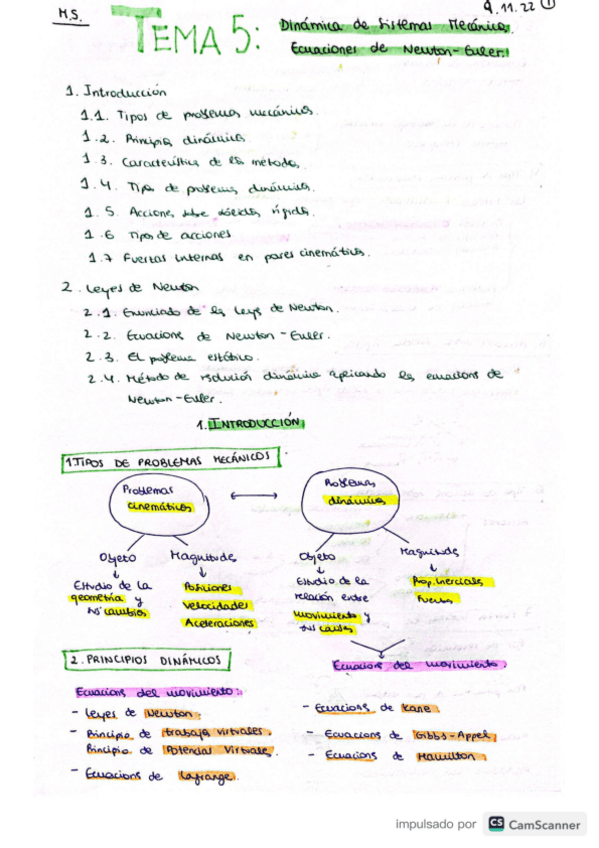 M.S.
9.11.22 1
TEMA 5: Dinámica de Sistemas Mecánicos.
Ecuaciones de Newton-Euler.
1. Introducción
1.1. Tipos de problemas mecánicos.
1.2. Principios dinámicos
1.3. Características de los métodos.
1.4. Tipos de problemas dinámicos.
1.5. Acciones sobre sólidos rígidos.
1.6 Tipos de acciones
1.7 Fuerzas internas en pares cinemáticos.
2. Leyes de Newton
2.1. Enunciado de las leyes de Newton.
2.2. Ecuaciones de Newton-Euler.
2.3. El problema estático.
2.4. Método de resolución dinámica aplicando las ecuaciones de
Newton-Euler.
1. INTRODUCCIÓN
1. TIPOS DE PROBLEMAS MECÁNICOS
Problemas
cinemáticos
Problemas
dinámicos
Objeto
Magnitudes
Objeto
Magnitudes
Estudio de la
geometría y
sus cambios
Posiciones
Velocidades
Aceleraciones
Estudio de la
relación entre
movimiento y
sus causas
Prop. Inerciales
Fuerzas
Ecuaciones del movimiento
2. PRINCIPIOS DINÁMICOS
Ecuaciones del movimiento:
- Leyes de Newton.
- Principio de trabajos virtuales.
Principio de Potencias Virtuales.
- Ecuaciones de Lagrange.
- Ecuaciones de Kane
- Ecuaciones de Gibbs-Appel
- Ecuaciones de Hamilton
impulsado por CS CamScanner